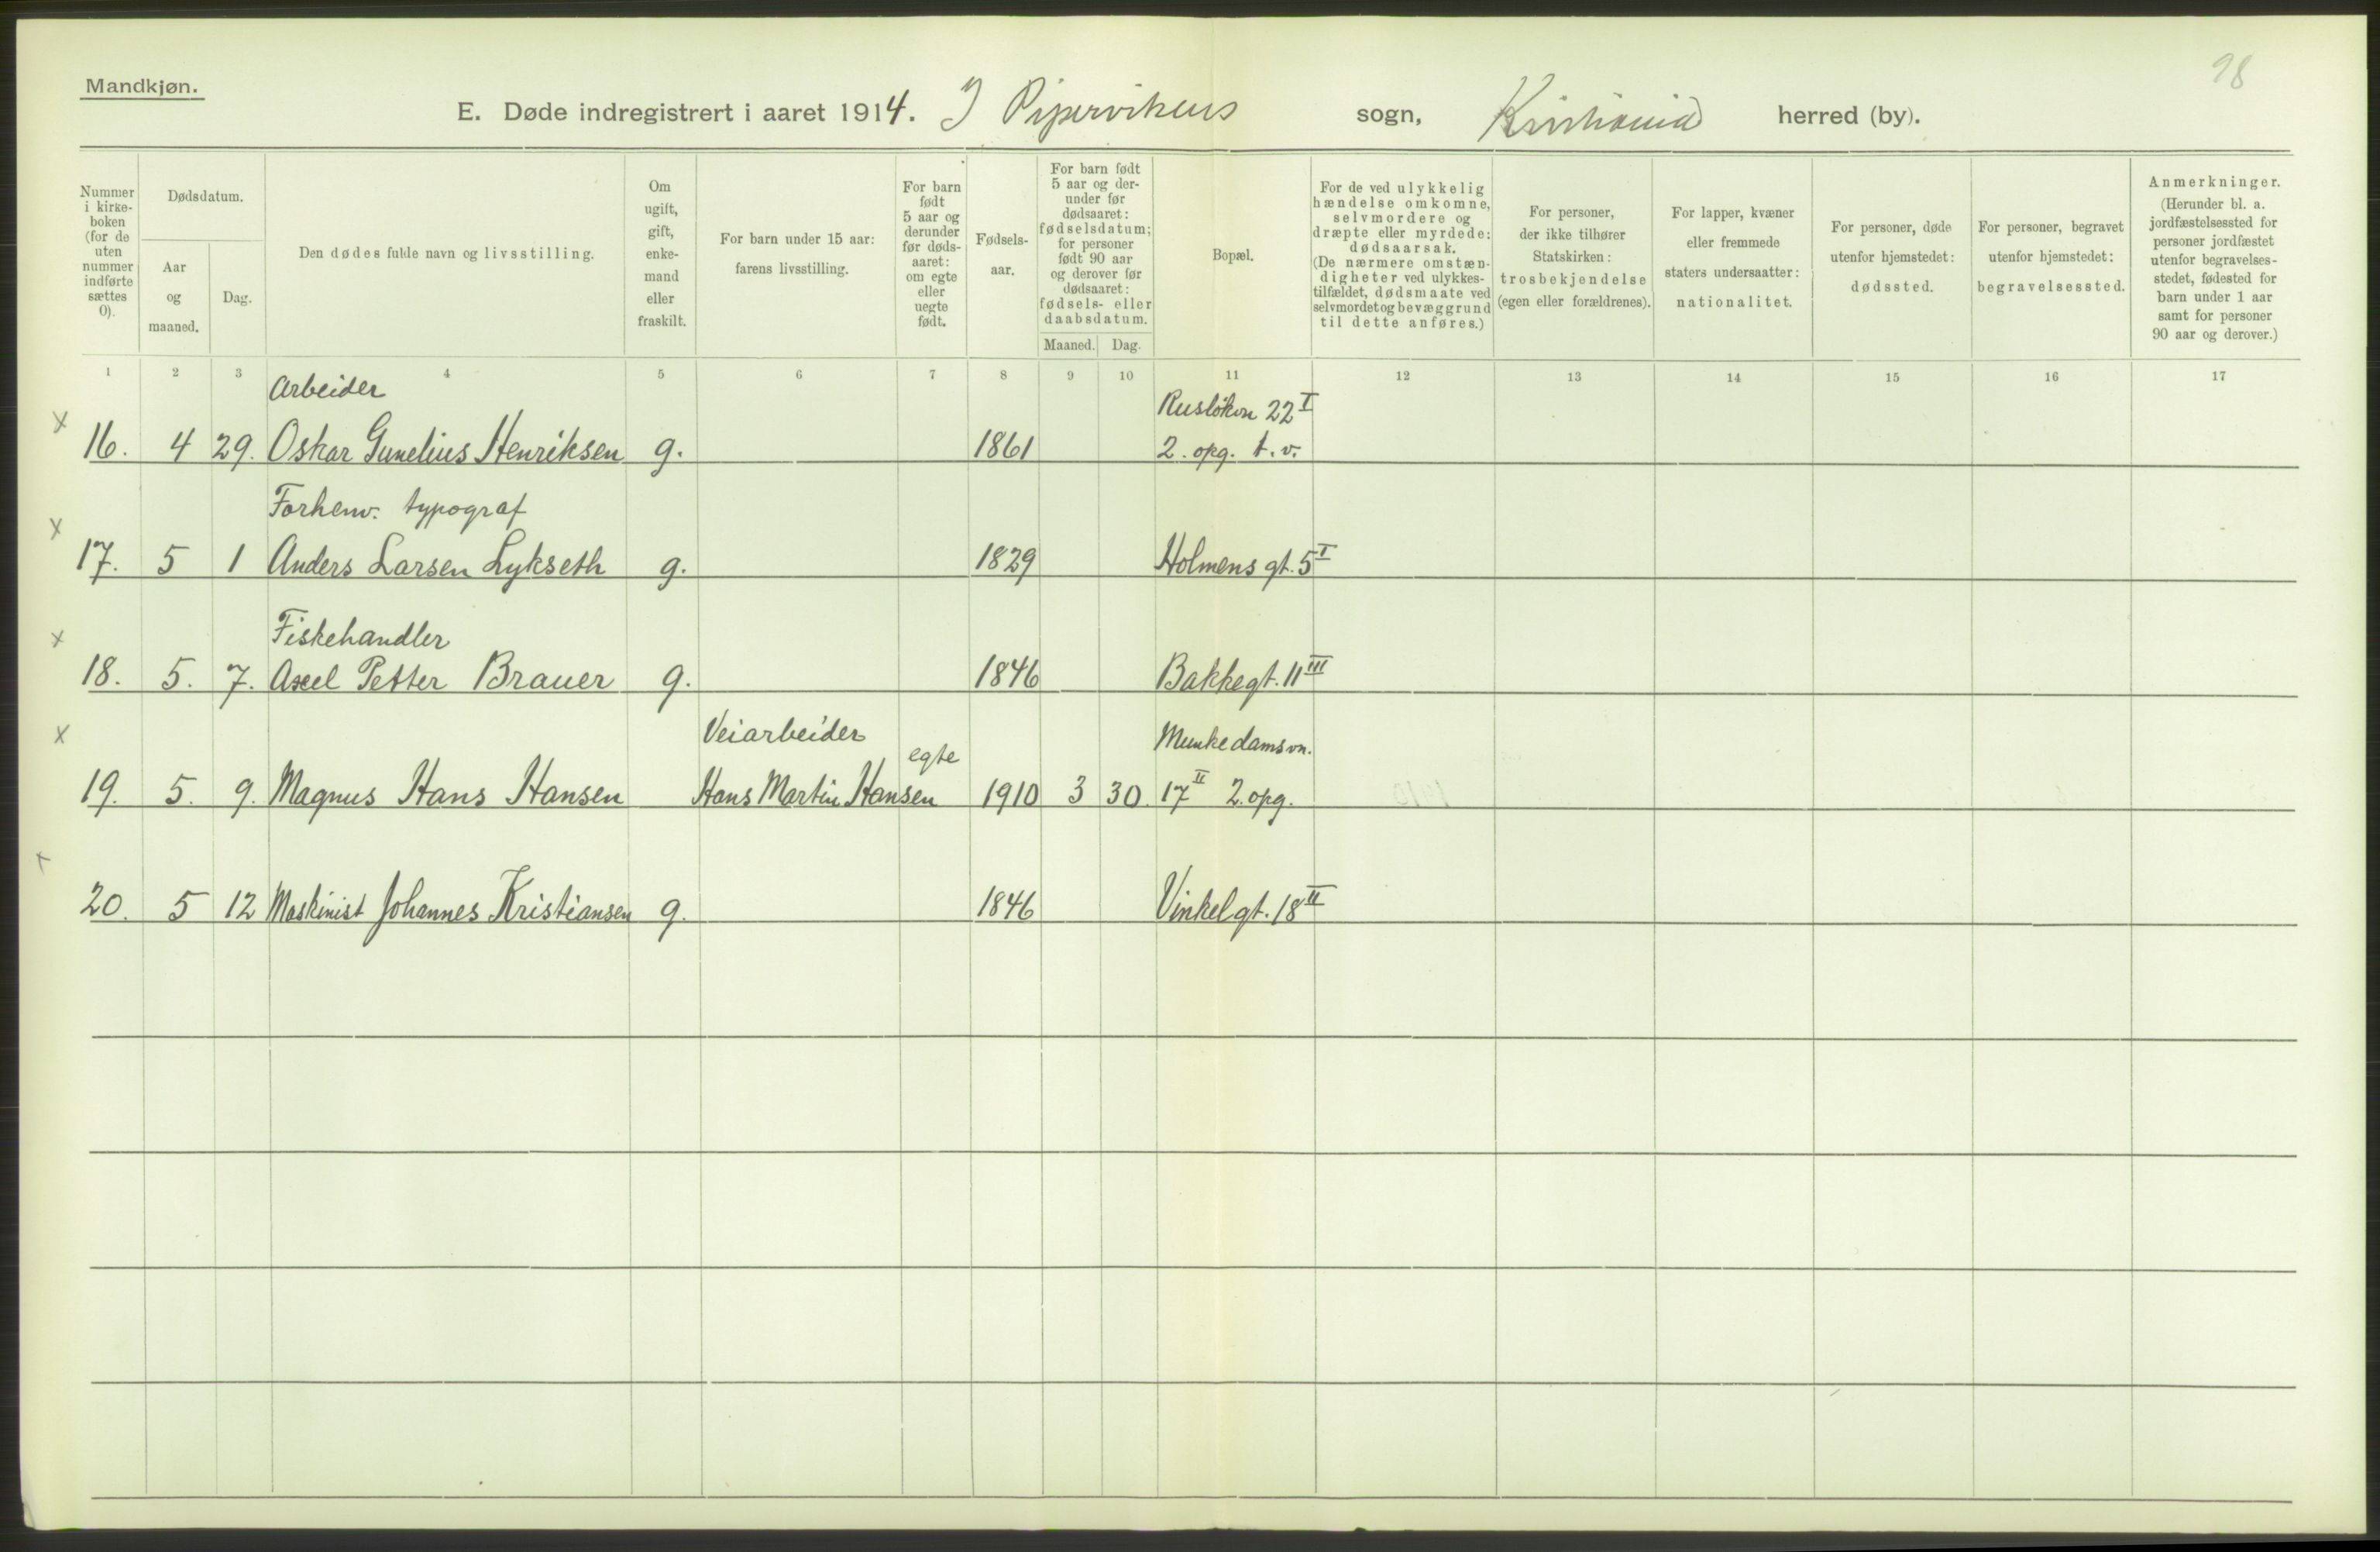 98
Mandkjøn.
E. Døde indregistrert i aaret 1914. I Pipervikens sogn, Kristiania herred (by).
Nummer i kirkeboken (for de uten nummer indførte sættes 0).
Dødsdatum.
Aar og maaned.
Dag.
Den dødes fulde navn og livsstilling.
Om ugift, gift, enkemand eller fraskilt.
For barn under 15 aar: farens livsstilling.
For barn født 5 aar og derunder før dødsaaret: om egte eller uegte født.
Fødselsaar.
For barn født 5 aar og derunder før dødsaaret: fødselsdatum; for personer født 90 aar og derover før dødsaaret: fødsels- eller daabsdatum.
Maaned. Dag.
Bopæl.
For de ved ulykkelig hændelse omkomne, selvmordere og dræpte eller myrdede: dødsaarsak. (De nærmere omstændigheter ved ulykkestilfældet, dødsmaate ved selvmordet og bevæggrund til dette anføres.)
For personer, der ikke tilhører Statskirken: trosbekjendelse (egen eller forældrenes).
For lapper, kvæner eller fremmede staters undersaatter: nationalitet.
For personer, døde utenfor hjemstedet: dødssted.
For personer, begravet utenfor hjemstedet: begravelsessted.
Anmerkninger. (Herunder bl. a. jordfæstelsessted for personer jordfæstet utenfor begravelsesstedet, fødested for barn under 1 aar samt for personer 90 aar og derover.)
1 2 3 4 5 6 7 8 9 10 11 12 13 14 15 16 17
Arbeider Rusløkvn 22 I
x 16. 4 29. Oskar Gunelius Henriksen g. 1861 2. opg. t.v.
Forhenv. typograf
x 17. 5 1 Anders Larsen Lykseth g. 1829 Holmens gt. 5 I
Fiskehandler
x 18. 5. 7. Axel Petter Brauer g. 1846 Bakkegt. 11 III
Veiarbeider egte Munkedamsvn.
x 19. 5. 9. Magnus Hans Hansen Hans Martin Hansen 1910 3 30. 17 II 2. opg.
x 20. 5 12 Maskinist Johannes Kristiansen g. 1846 Vinkelgt. 18 II